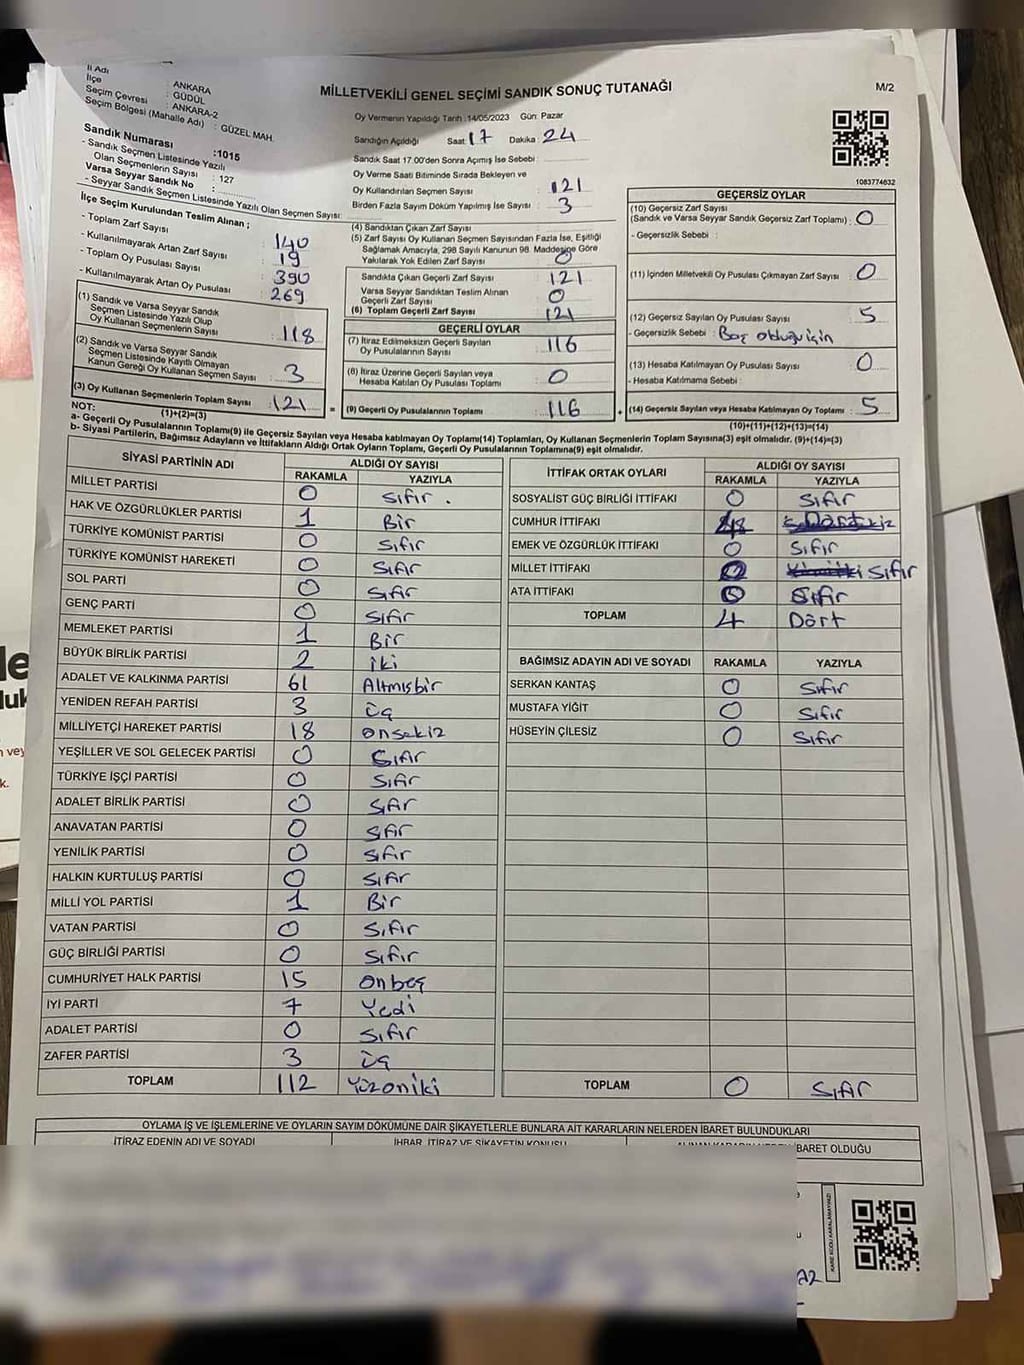 İl Adı : ANKARA
İlçe : GÜDÜL
Seçim Çevresi : ANKARA-2
Seçim Bölgesi (Mahalle Adı) : GÜZEL MAH.
Sandık Numarası :1015
- Sandık Seçmen Listesinde Yazılı
Olan Seçmenlerin Sayısı : 127
Varsa Seyyar Sandık No :
- Seyyar Sandık Seçmen Listesinde Yazılı Olan Seçmen Sayısı:
İlçe Seçim Kurulundan Teslim Alınan ;
- Toplam Zarf Sayısı : 140
- Kullanılmayarak Artan Zarf Sayısı : 19
- Toplam Oy Pusulası Sayısı : 390
- Kullanılmayarak Artan Oy Pusulası : 269
(1) Sandık ve Varsa Seyyar Sandık
Seçmen Listesinde Yazılı Olup
Oy Kullanan Seçmenlerin Sayısı : 118
(2) Sandık ve Varsa Seyyar Sandık
Seçmen Listesinde Kayıtlı Olmayan
Kanun Gereği Oy Kullanan Seçmen Sayısı : 3
(3) Oy Kullanan Seçmenlerin Toplam Sayısı : 121 =
(1)+(2)=(3)
MİLLETVEKİLİ GENEL SEÇİMİ SANDIK SONUÇ TUTANAĞI
M/2
Oy Vermenin Yapıldığı Tarih :14/05/2023 Gün: Pazar
Sandığın Açıldığı Saat: 17 Dakika : 24
Sandık Saat 17.00'den Sonra Açımış İse Sebebi :
Oy Verme Saati Bitiminde Sırada Bekleyen ve
Oy Kullandırılan Seçmen Sayısı : 121
Birden Fazla Sayım Döküm Yapılmış İse Sayısı : 3
(4) Sandıktan Çıkan Zarf Sayısı :
(5) Zarf Sayısı Oy Kullanan Seçmen Sayısından Fazla İse, Eşitliği
Sağlamak Amacıyla, 298 Sayılı Kanunun 98. Maddesine Göre
Yakılarak Yok Edilen Zarf Sayısı : 0
Sandıkta Çıkan Geçerli Zarf Sayısı : 121
Varsa Seyyar Sandıktan Teslim Alınan
Geçerli Zarf Sayısı : 0
(6) Toplam Geçerli Zarf Sayısı : 121
GEÇERLİ OYLAR
(7) İtiraz Edilmeksizin Geçerli Sayılan
Oy Pusulalarının Sayısı : 116
(8) İtiraz Üzerine Geçerli Sayılan veya
Hesaba Katılan Oy Pusulası Toplamı : 0
(9) Geçerli Oy Pusulalarının Toplamı : 116 +
1083774632
GEÇERSİZ OYLAR
(10) Geçersiz Zarf Sayısı
(Sandık ve Varsa Seyyar Sandık Geçersiz Zarf Toplamı) : 0
- Geçersizlik Sebebi :
(11) İçinden Milletvekili Oy Pusulası Çıkmayan Zarf Sayısı : 0
(12) Geçersiz Sayılan Oy Pusulası Sayısı : 5
- Geçersizlik Sebebi : Boş olduğu için
(13) Hesaba Katılmayan Oy Pusulası Sayısı : 0
- Hesaba Katılmama Sebebi :
(14) Geçersiz Sayılan veya Hesaba Katılmayan Oy Toplamı : 5
(10)+(11)+(12)+(13)=(14)
NOT:
a- Geçerli Oy Pusulalarının Toplamı(9) ile Geçersiz Sayılan veya Hesaba katılmayan Oy Toplamı(14) Toplamları, Oy Kullanan Seçmenlerin Toplam Sayısına(3) eşit olmalıdır. (9)+(14)=(3)
b- Siyasi Partilerin, Bağımsız Adayların ve İttifakların Aldığı Ortak Oyların Toplamı, Geçerli Oy Pusulalarının Toplamına(9) eşit olmalıdır.
SİYASİ PARTİNİN ADI ALDIĞI OY SAYISI
RAKAMLA YAZIYLA
MİLLET PARTİSİ 0 Sıfır .
HAK VE ÖZGÜRLÜKLER PARTİSİ 1 Bir
TÜRKİYE KOMÜNİST PARTİSİ 0 Sıfır
TÜRKİYE KOMÜNİST HAREKETİ 0 Sıfır
SOL PARTİ 0 Sıfır
GENÇ PARTİ 0 Sıfır
MEMLEKET PARTİSİ 1 Bir
BÜYÜK BİRLİK PARTİSİ 2 İki
ADALET VE KALKINMA PARTİSİ 61 Altmışbir
YENİDEN REFAH PARTİSİ 3 Üç
MİLLİYETÇİ HAREKET PARTİSİ 18 Onsekiz
YEŞİLLER VE SOL GELECEK PARTİSİ 0 Sıfır
TÜRKİYE İŞÇİ PARTİSİ 0 Sıfır
ADALET BİRLİK PARTİSİ 0 Sıfır
ANAVATAN PARTİSİ 0 Sıfır
YENİLİK PARTİSİ 0 Sıfır
HALKIN KURTULUŞ PARTİSİ 0 Sıfır
MİLLİ YOL PARTİSİ 1 Bir
VATAN PARTİSİ 0 Sıfır
GÜÇ BİRLİĞİ PARTİSİ 0 Sıfır
CUMHURİYET HALK PARTİSİ 15 Onbeş
İYİ PARTİ 7 Yedi
ADALET PARTİSİ 0 Sıfır
ZAFER PARTİSİ 3 Üç
TOPLAM 112 Yüzoniki
İTTİFAK ORTAK OYLARI ALDIĞI OY SAYISI
RAKAMLA YAZIYLA
SOSYALİST GÜÇ BİRLİĞİ İTTİFAKI 0 Sıfır
CUMHUR İTTİFAKI
EMEK VE ÖZGÜRLÜK İTTİFAKI 0 Sıfır
MİLLET İTTİFAKI Sıfır
ATA İTTİFAKI 0 Sıfır
TOPLAM 4 Dört
BAĞIMSIZ ADAYIN ADI VE SOYADI RAKAMLA YAZIYLA
SERKAN KANTAŞ 0 Sıfır
MUSTAFA YİĞİT 0 Sıfır
HÜSEYİN ÇİLESİZ 0 Sıfır
TOPLAM 0 Sıfır
OYLAMA İŞ VE İŞLEMLERİNE VE OYLARIN SAYIM DÖKÜMÜNE DAİR ŞİKAYETLERLE BUNLARA AİT KARARLARIN NELERDEN İBARET BULUNDUKLARI
İTİRAZ EDENİN ADI VE SOYADI İHBAR, İTİRAZ VE ŞİKAYETİN KONUSU İBARET OLDUĞU